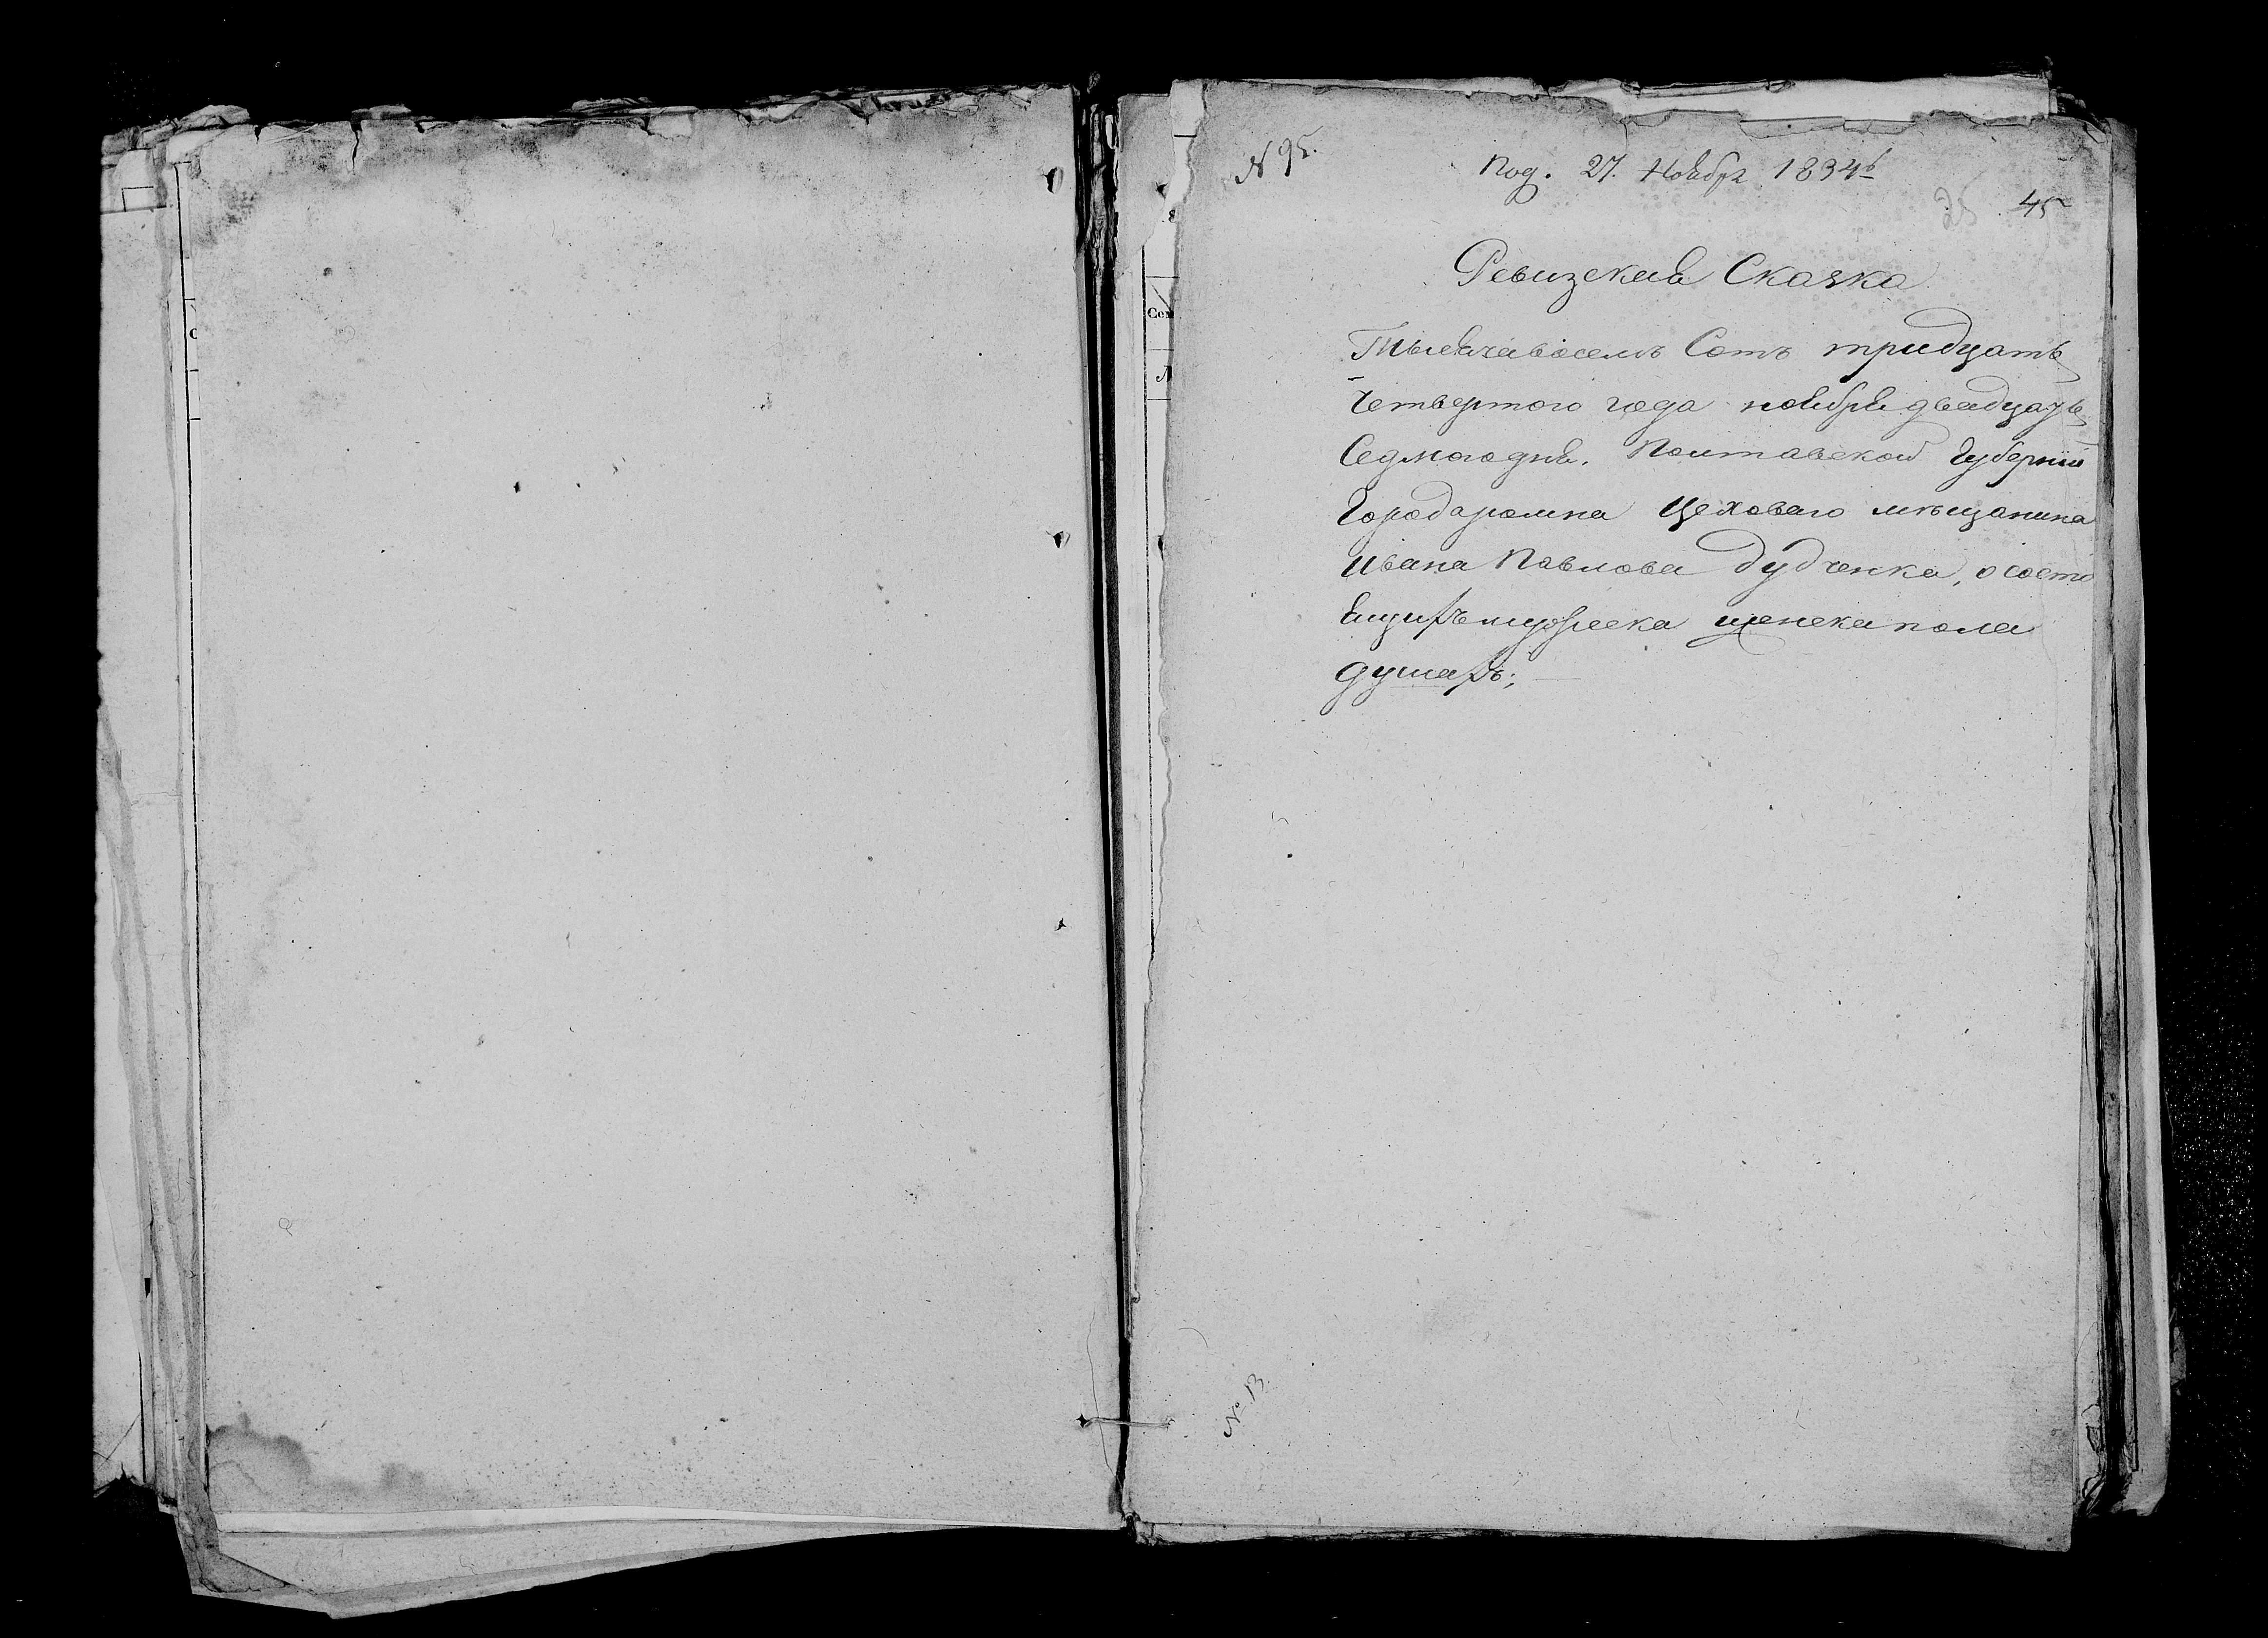 N 95.
Под. 27. Ноября 1834г
45
Ревизская Сказка
Тысяча восемъ Сотъ тридцать
Четвертого года ноября двадцать
Седмого дня. Полтавской Губерніи
Города ромна Цеховаго мѣщанина
Ивана Павлова Дудченка, о состо
ящихъ мужеска женска пола
душахъ;
№ 13